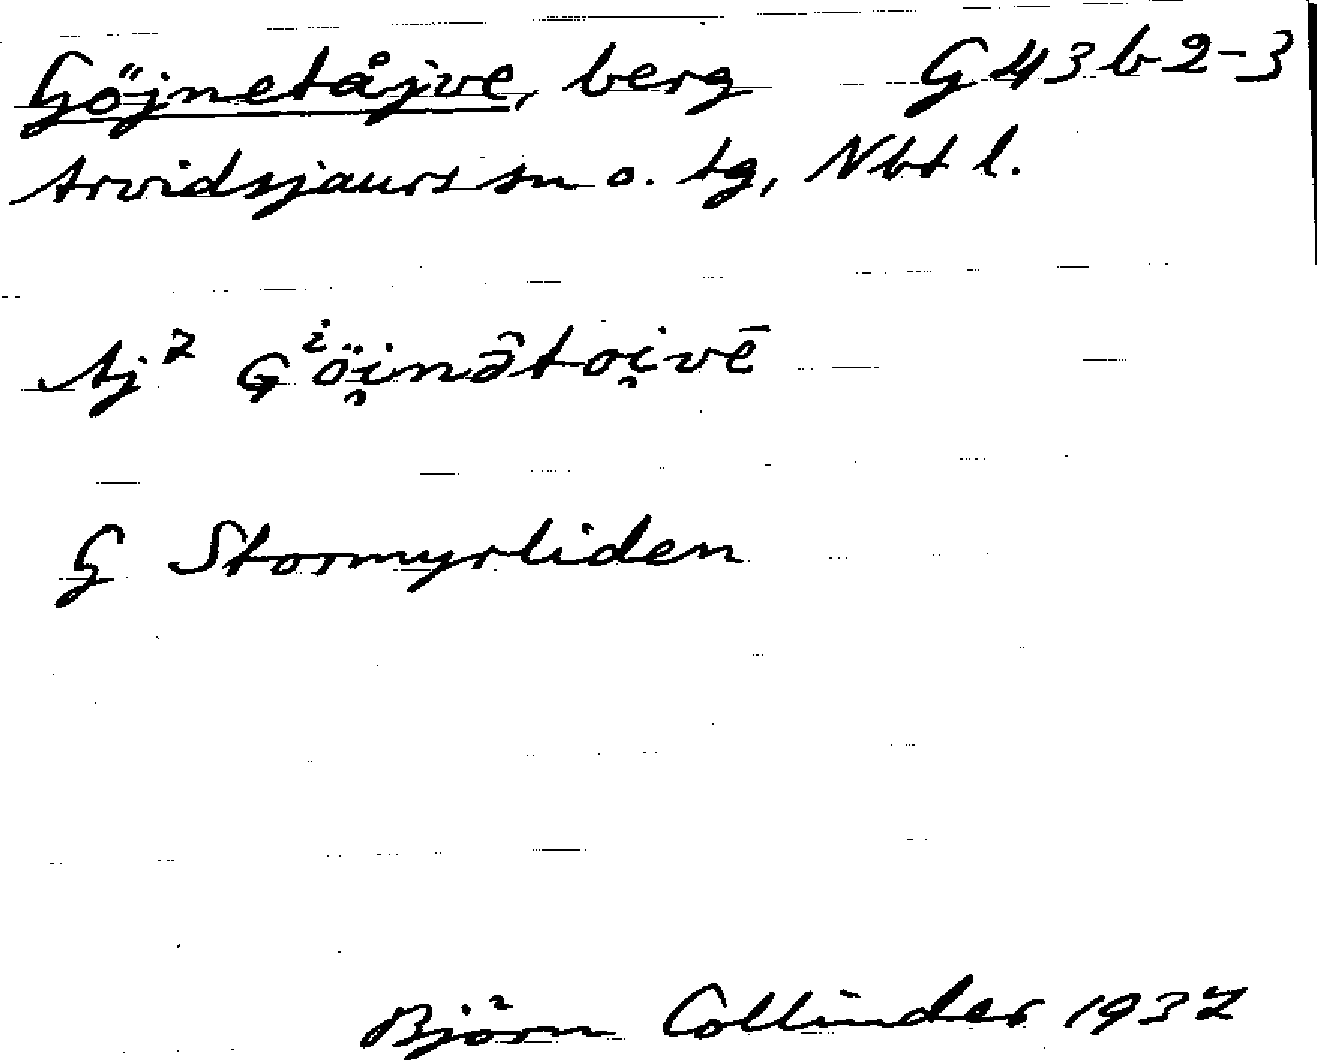 Göjnetåjve, berg G 43 b 2-3
Arvidsjaurs sn o. tg, Nbt l.
Aj² Gⁱöi̯nə̑toi̯vē
G Stormyrliden
Björn Collinder 1937